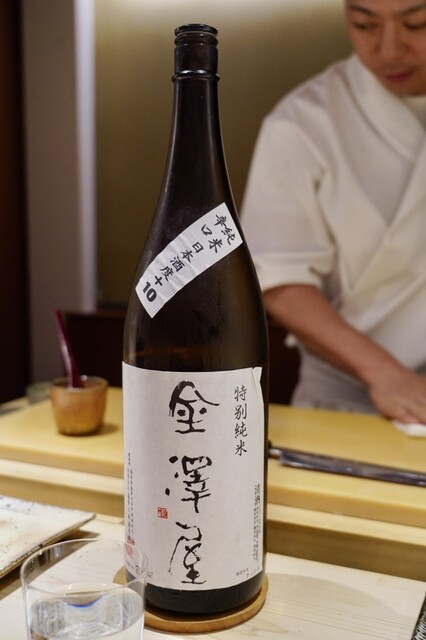 純米
辛口
日本酒度+10
特別純米
金澤屋
清酒